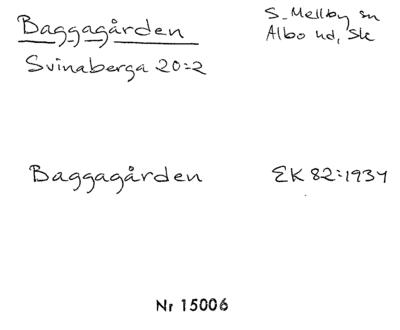 Baggagården
Svinaberga 20:2
S. Mellby sn
Albo hd, Sk
Baggagården
EK 82:1934
Nr 15006